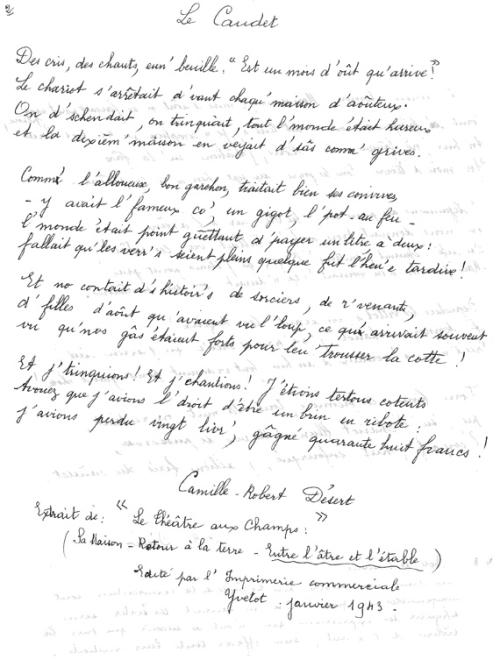 2
Le Caudet
Des cris, des chants, eun' beuille. "Est un mois d'oût qu'arrive"!
Le chariot s'arrêtait d'vant chaqu' maison d'aoûteux.
On d'schendait, on trinquait, tout l'monde était hureux
et la dixièm' maison en veyait d'sâs comm' grives.
Comme l'alloueux, bon garchon, traitait bien ses convives,
- y avait l'fameux co', un gigot, l'pot-au feu -
l'monde était point guettant d'payer un litre à deux :
fallait qu'les verr's seient pleins quelque fût l'heu'e tardive !
Et no contait d's histoir's de sorciers, de r'venants,
d'filles d'août qu'avaient vu l'loup, ce qui arrivait souvent
vu qu'nos gâs étaient forts pour leu trousser la cotte !
Et j'trinquions ! Et j'chantions ! J'étions tertous contents
Avouez que j'avions l'droit d'être un brin en ribote :
j'avions perdu vingt livr', gâgné quarante huit francs !
Camille-Robert Désert
Extrait de : "Le théâtre aux Champs :"
(Sa Maison - Retour à la terre - Entre l'âtre et l'étable)
Edité par l'Imprimerie commerciale
Yvetot : janvier 1943 -